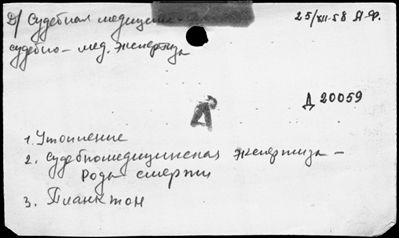 Д/ Судебная медицина
25/XII-58 Я.Ф.
судебно-мед. экспертиза
Д 20059
Д
1. Утопление
2. Судебномедицинская экспертиза –
Роды смерти
3. Планктон